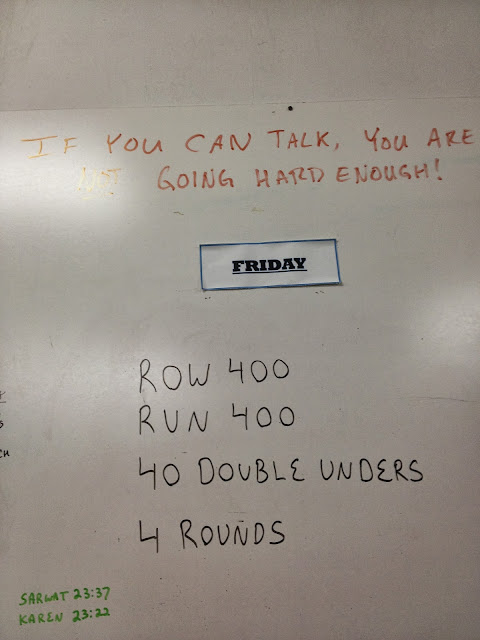 IF YOU CAN TALK, YOU ARE
NOT GOING HARD ENOUGH!
FRIDAY
ROW 400
RUN 400
40 DOUBLE UNDERS
4 ROUNDS
SARWAT 23:37
KAREN 23:22